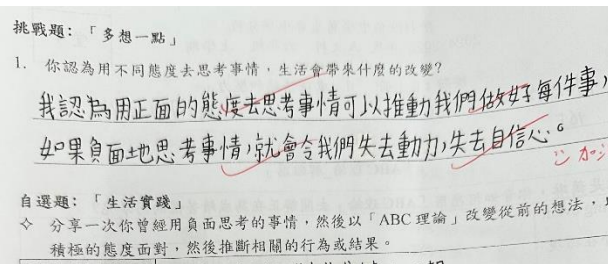 挑戰題：「多想一點」
1. 你認為用不同態度去思考事情，生活會帶來什麼的改變?
我認為用正面的態度去思考事情可以推動我們做好每件事，
如果負面地思考事情，就會令我們失去動力，失去自信心。
加
自選題：「生活實踐」
✧ 分享一次你曾經用負面思考的事情，然後以「ABC 理論」改變從前的想法，
積極的態度面對，然後推斷相關的行為或結果。